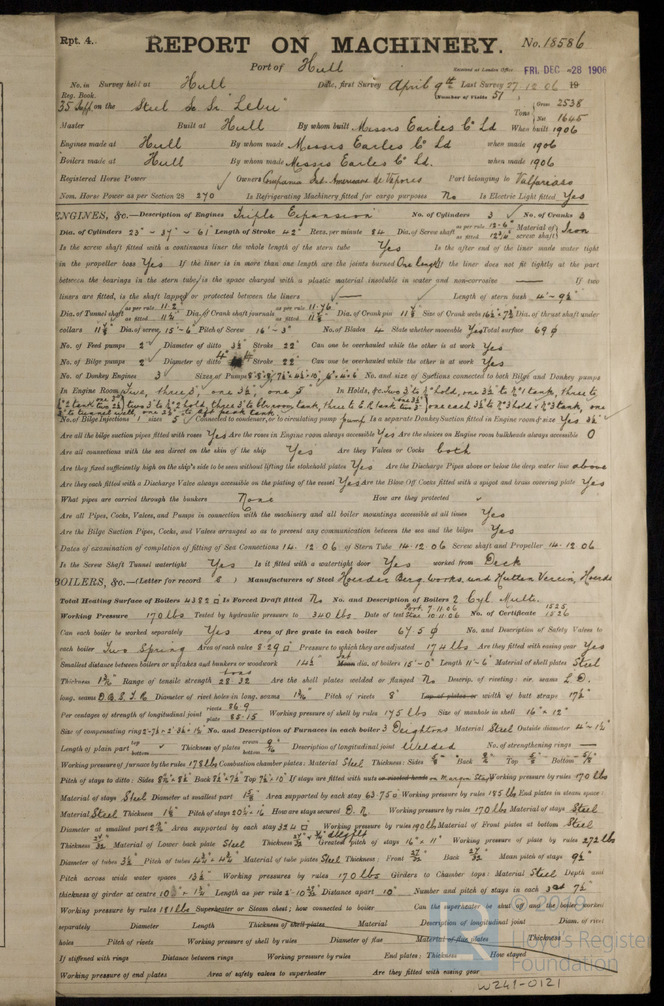 Rpt. 4.
REPORT ON MACHINERY. No. 18586
Port of Hull
Received at London Office FRI. DEC -28 1906
No. in Survey held at Hull Date, first Survey April 9th Last Survey 27.12.06 19
Reg. Book. (Number of Visits 51)
35 Supp on the Steel Sc Sr "Lebu" Tons Gross 2538 Net 1645
Master Built at Hull By whom built Messrs Earles Co Ld When built 1906
Engines made at Hull By whom made Messrs Earles Co Ld when made 1906
Boilers made at Hull By whom made Messrs Earles Co Ld. when made 1906
Registered Horse Power Owners Compania Sud-Americana de Vapores Port belonging to Valparaiso
Nom. Horse Power as per Section 28 270 Is Refrigerating Machinery fitted for cargo purposes No Is Electric Light fitted Yes
ENGINES, &c.—Description of Engines Triple Expansion No. of Cylinders 3 No. of Cranks 3
Dia. of Cylinders 23" - 37" - 61" Length of Stroke 42" Revs. per minute 84 Dia. of Screw shaft as per rule 12.6" as fitted Material of screw shaft Iron
Is the screw shaft fitted with a continuous liner the whole length of the stern tube Yes Is the after end of the liner made water tight
in the propeller boss Yes If the liner is in more than one length are the joints burned One length If the liner does not fit tightly at the part
between the bearings in the stern tube, is the space charged with a plastic material insoluble in water and non-corrosive — If two
liners are fitted, is the shaft lapped or protected between the liners — Length of stern bush 4'-9½"
Dia. of Tunnel shaft as per rule 11.2" as fitted Dia. of Crank shaft journals as per rule 11.76" as fitted Dia. of Crank pin Size of Crank webs Dia. of thrust shaft under
collars Dia. of screw 15'-6" Pitch of Screw 16'-3" No. of Blades 4 State whether moveable Yes Total surface 69 ϕ
No. of Feed pumps 2 Diameter of ditto 3½" Stroke 22" Can one be overhauled while the other is at work Yes
No. of Bilge pumps 2 Diameter of ditto 4" Stroke 22" Can one be overhauled while the other is at work Yes
No. of Donkey Engines 3 Sizes of Pumps No. and size of Suctions connected to both Bilge and Donkey pumps
In Engine Room In Holds, &c.
No. of Bilge Injections 1 sizes 5 Connected to condenser, or to circulating pump pump Is a separate Donkey Suction fitted in Engine room & size Yes 3½"
Are all the bilge suction pipes fitted with roses Yes Are the roses in Engine room always accessible Yes Are the sluices on Engine room bulkheads always accessible 0
Are all connections with the sea direct on the skin of the ship Yes Are they Valves or Cocks both
Are they fixed sufficiently high on the ship's side to be seen without lifting the stokehold plates Yes Are the Discharge Pipes above or below the deep water line above
Are they each fitted with a Discharge Valve always accessible on the plating of the vessel Yes Are the Blow Off Cocks fitted with a spigot and brass covering plate Yes
What pipes are carried through the bunkers None How are they protected
Are all Pipes, Cocks, Valves, and Pumps in connection with the machinery and all boiler mountings accessible at all times Yes
Are the Bilge Suction Pipes, Cocks, and Valves arranged so as to prevent any communication between the sea and the bilges Yes
Dates of examination of completion of fitting of Sea Connections 14.12.06 of Stern Tube 14.12.06 Screw shaft and Propeller 14.12.06
Is the Screw Shaft Tunnel watertight Yes Is it fitted with a watertight door Yes worked from Deck
BOILERS, &c.—(Letter for record S) Manufacturers of Steel Hoerder Berg. Works. und Hutten Verein, Hoerde
Total Heating Surface of Boilers 4382 □ Is Forced Draft fitted No No. and Description of Boilers 2 Cyl. Mult.
Working Pressure 170 lbs Tested by hydraulic pressure to 340 lbs Date of test Port. 7.11.06 Star. 10.11.06 No. of Certificate 1525 1526
Can each boiler be worked separately Yes Area of fire grate in each boiler 67.5 ϕ No. and Description of Safety Valves to
each boiler Two Spring Area of each valve 8.29 □ Pressure to which they are adjusted 174 lbs Are they fitted with easing gear Yes
Smallest distance between boilers or uptakes and bunkers or woodwork 14½" dia. of boilers 15'-0" Length 11'-6 Material of shell plates Steel
Thickness Range of tensile strength 28-32 Are the shell plates welded or flanged No Descrip. of riveting: cir. seams L.D.
long. seams D.B.S.T.R. Diameter of rivet holes in long. seams Pitch of rivets 8" Lap of plates or width of butt straps
Per centages of strength of longitudinal joint rivets 86.9 plate 83.15 Working pressure of shell by rules 175 lbs Size of manhole in shell 16" × 12"
Size of compensating ring No. and Description of Furnaces in each boiler 3 Deightons Material Steel Outside diameter 4'-1½"
Length of plain part top bottom Thickness of plates crown bottom Description of longitudinal joint Welded No. of strengthening rings —
Working pressure of furnace by the rules 178 lbs Combustion chamber plates: Material Steel Thickness: Sides Back Top Bottom
Pitch of stays to ditto: Sides Back Top If stays are fitted with nuts or riveted heads Working pressure by rules 170 lbs
Material of stays Steel Diameter at smallest part Area supported by each stay 63.75 □ Working pressure by rules 185 lbs End plates in steam space:
Material Steel Thickness Pitch of stays How are stays secured D.N. Working pressure by rules 170 lbs Material of stays Steel
Diameter at smallest part Area supported by each stay 324 □ Working pressure by rules 190 lbs Material of Front plates at bottom Steel
Thickness Material of Lower back plate Steel Thickness Greatest pitch of stays 16" × 11" Working pressure of plate by rules 272 lbs
Diameter of tubes 3½" Pitch of tubes Material of tube plates Steel Thickness: Front Back Mean pitch of stays 9½"
Pitch across wide water spaces 13½" Working pressures by rules 170 lbs Girders to Chamber tops: Material Steel Depth and
thickness of girder at centre Length as per rule Distance apart 10" Number and pitch of stays in each
Working pressure by rules 181 lbs Superheater or Steam chest; how connected to boiler Can the superheater be shut off and the boiler worked
separately Diameter Length Thickness of shell plates Material Description of longitudinal joint Diam. of rivet
holes Pitch of rivets Working pressure of shell by rules Diameter of flue Material of flue plates Thickness
If stiffened with rings Distance between rings Working pressure by rules End plates: Thickness How stayed
Working pressure of end plates Area of safety valves to superheater Are they fitted with easing gear
© 2019
Lloyd's Register
Foundation
W241-0121